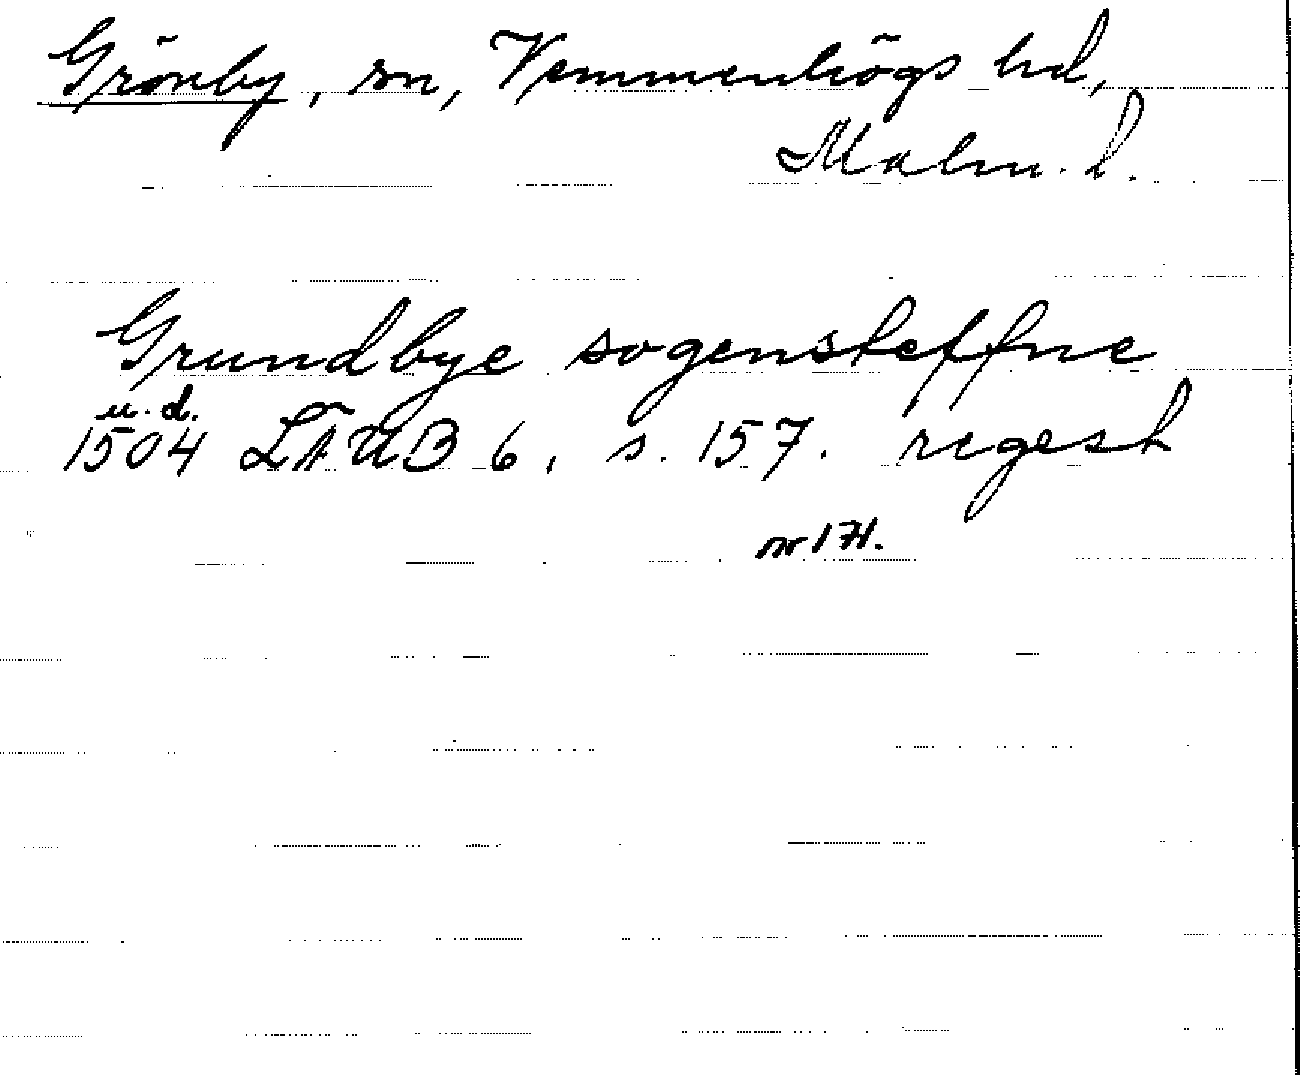 Grönby, sn, Vemmenhögs hd,
Malm. l.
Grundbye sogensteffne
u. d.
1504 LÄUB 6, s. 157. regest
nr 171.